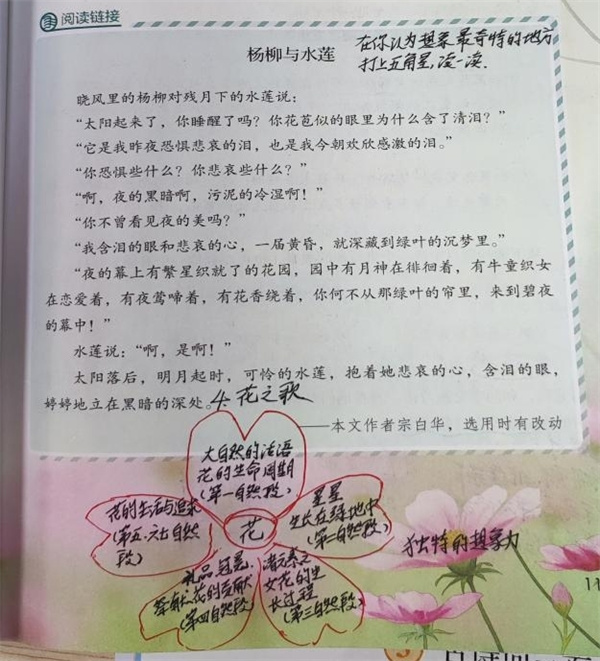 阅读链接
杨柳与水莲
在你认为想象最奇特的地方
打上五角星,读一读.
晓风里的杨柳对残月下的水莲说：
“太阳起来了，你睡醒了吗？你花苞似的眼里为什么含了清泪？”
“它是我昨夜恐惧悲哀的泪，也是我今朝欢欣感激的泪。”
“你恐惧些什么？你悲哀些什么？”
“啊，夜的黑暗啊，污泥的冷湿啊！”
“你不曾看见夜的美吗？”
“我含泪的眼和悲哀的心，一届黄昏，就深藏到绿叶的沉梦里。”
“夜的幕上有繁星织就了的花园，园中有月神在徘徊着，有牛童织女
在恋爱着，有夜莺啼着，有花香绕着，你何不从那绿叶的帘里，来到碧夜
的幕中！”
水莲说：“啊，是啊！”
太阳落后，明月起时，可怜的水莲，抱着她悲哀的心，含泪的眼，
婷婷地立在黑暗的深处。
4.花之歌
——本文作者宗白华，选用时有改动
大自然的话语
花的生命周期
(第一自然段)
花的生活与追求
(第五、六自然
段)
花
星星
生长在绿地中
(第二自然段)
独特的想象力
礼品、冠冕、
祭献,花的贡献
(第四自然段)
诸元素之
女花的生
长过程
(第三自然段)